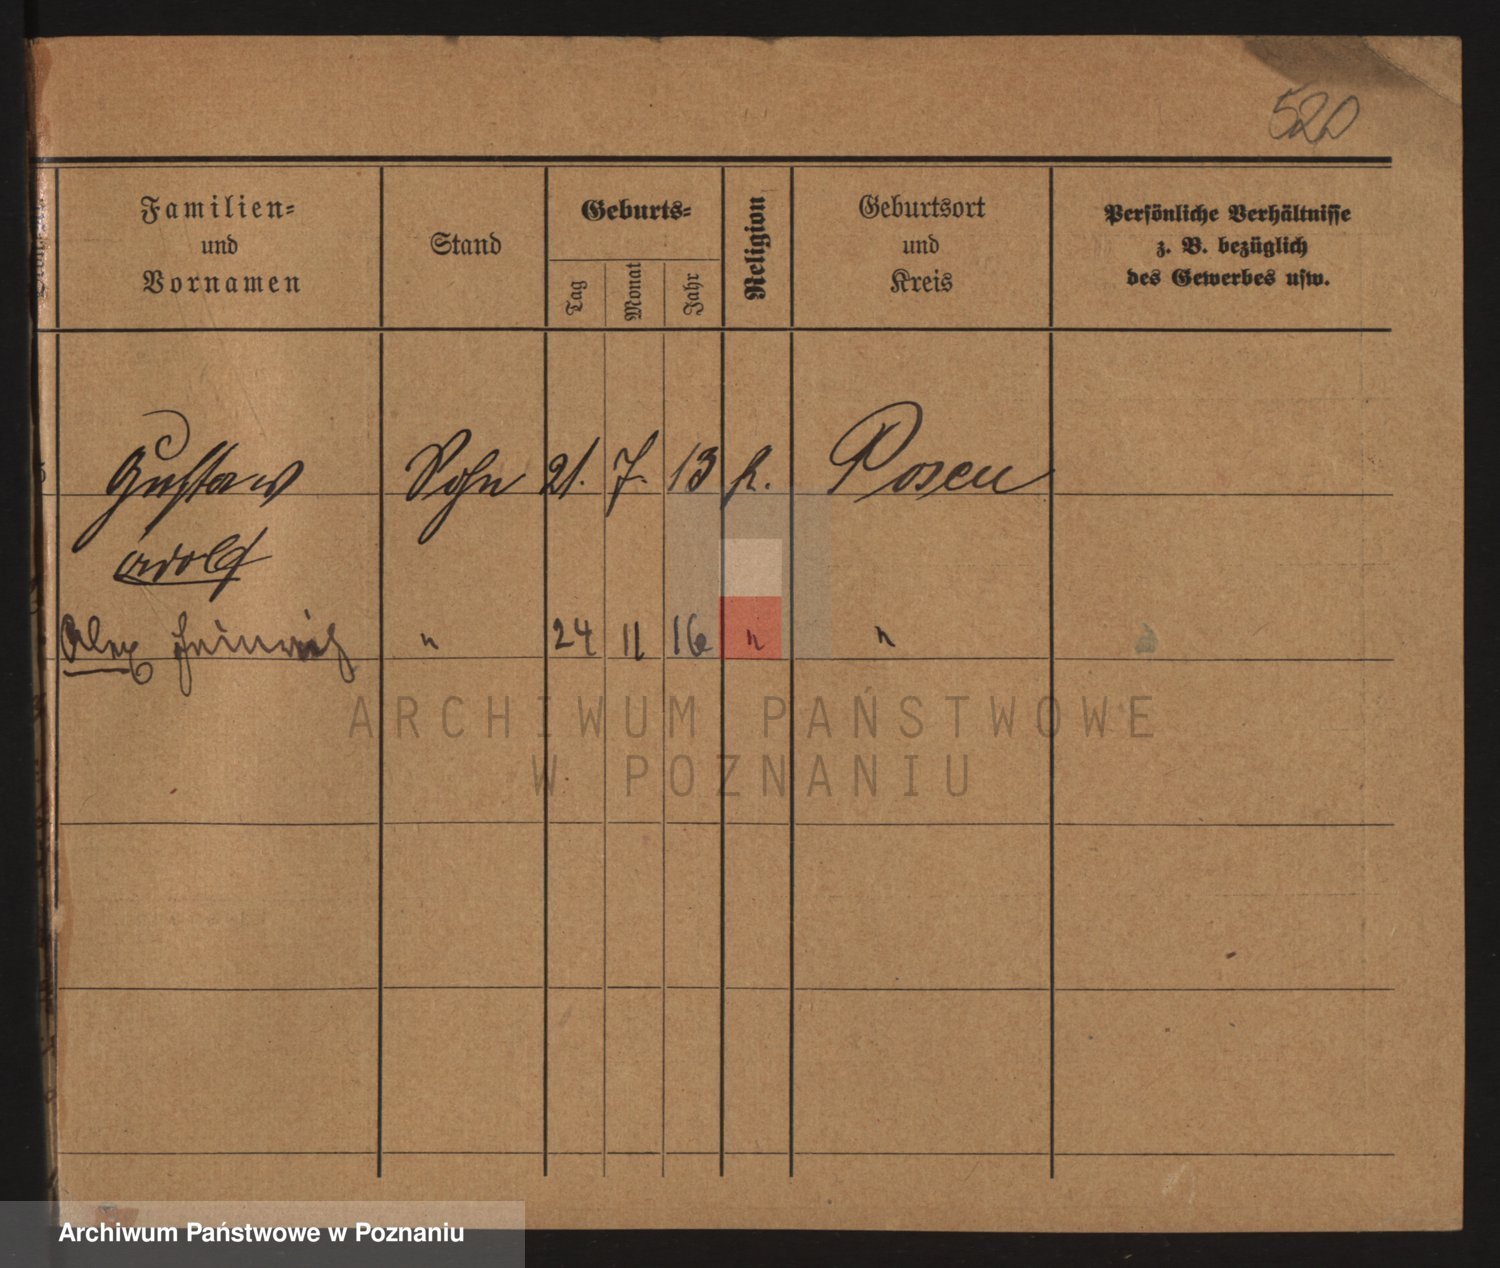 520
Familien=
und
Vornamen
Stand
Geburts=
Tag
Monat
Jahr
Religion
Geburtsort
und
Kreis
Persönliche Verhältnisse
z. B. bezüglich
des Gewerbes usw.
Gustaw Sohn 21. 7. 13 k. Posen
Adolf
Alex Heinrich " 24 11 16 " "
ARCHIWUM PAŃSTWOWE
W POZNANIU
Archiwum Państwowe w Poznaniu